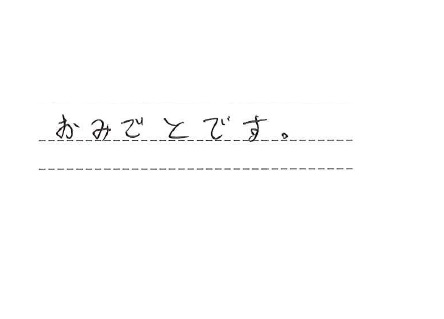 おみでとです。